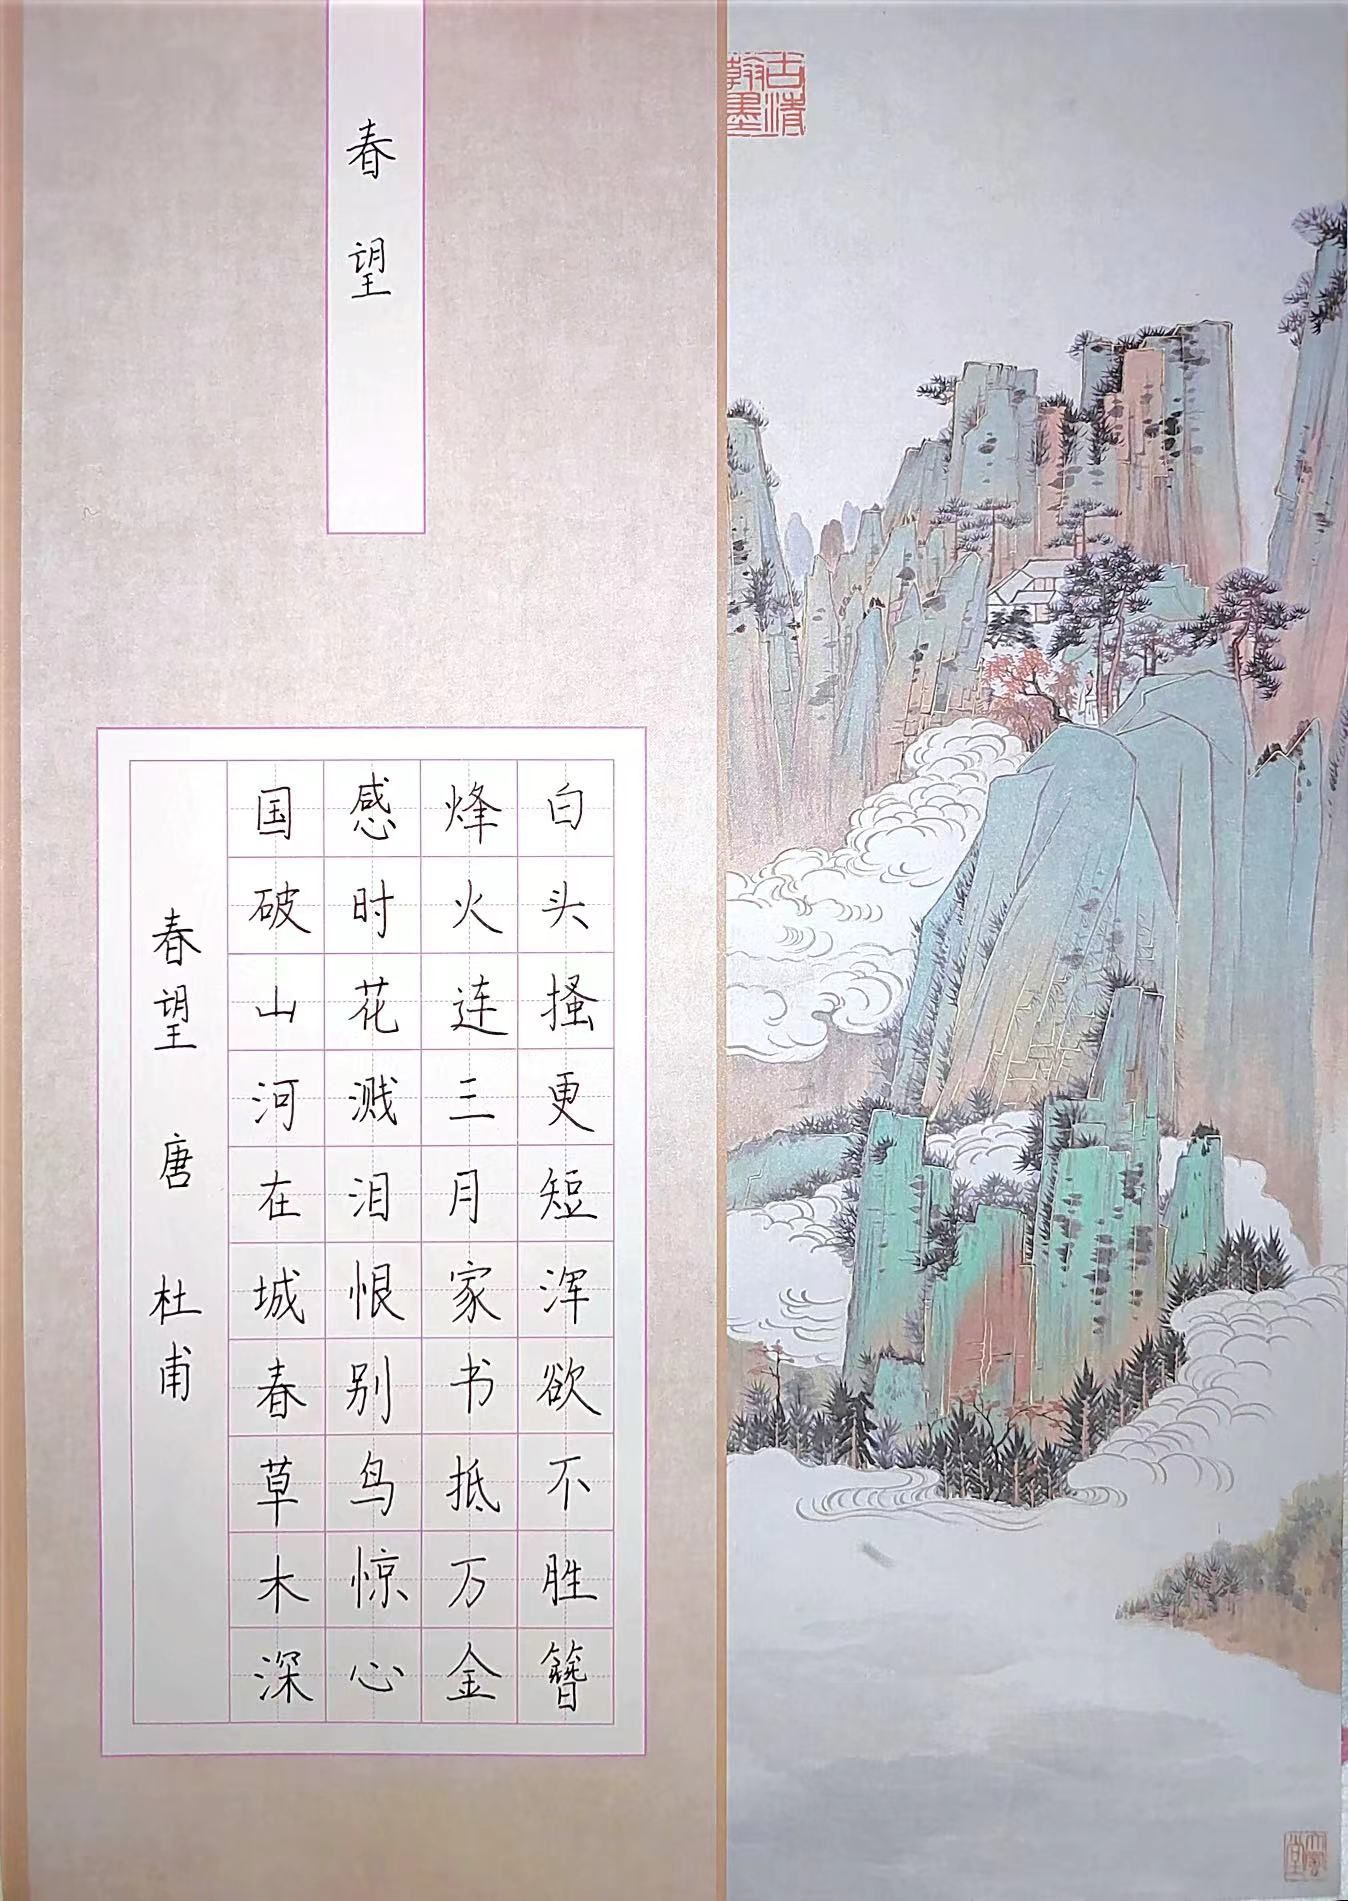 春望
春望 唐 杜甫
国破山河在城春草木深
感时花溅泪恨别鸟惊心
烽火连三月家书抵万金
白头搔更短浑欲不胜簪
古清
翰墨